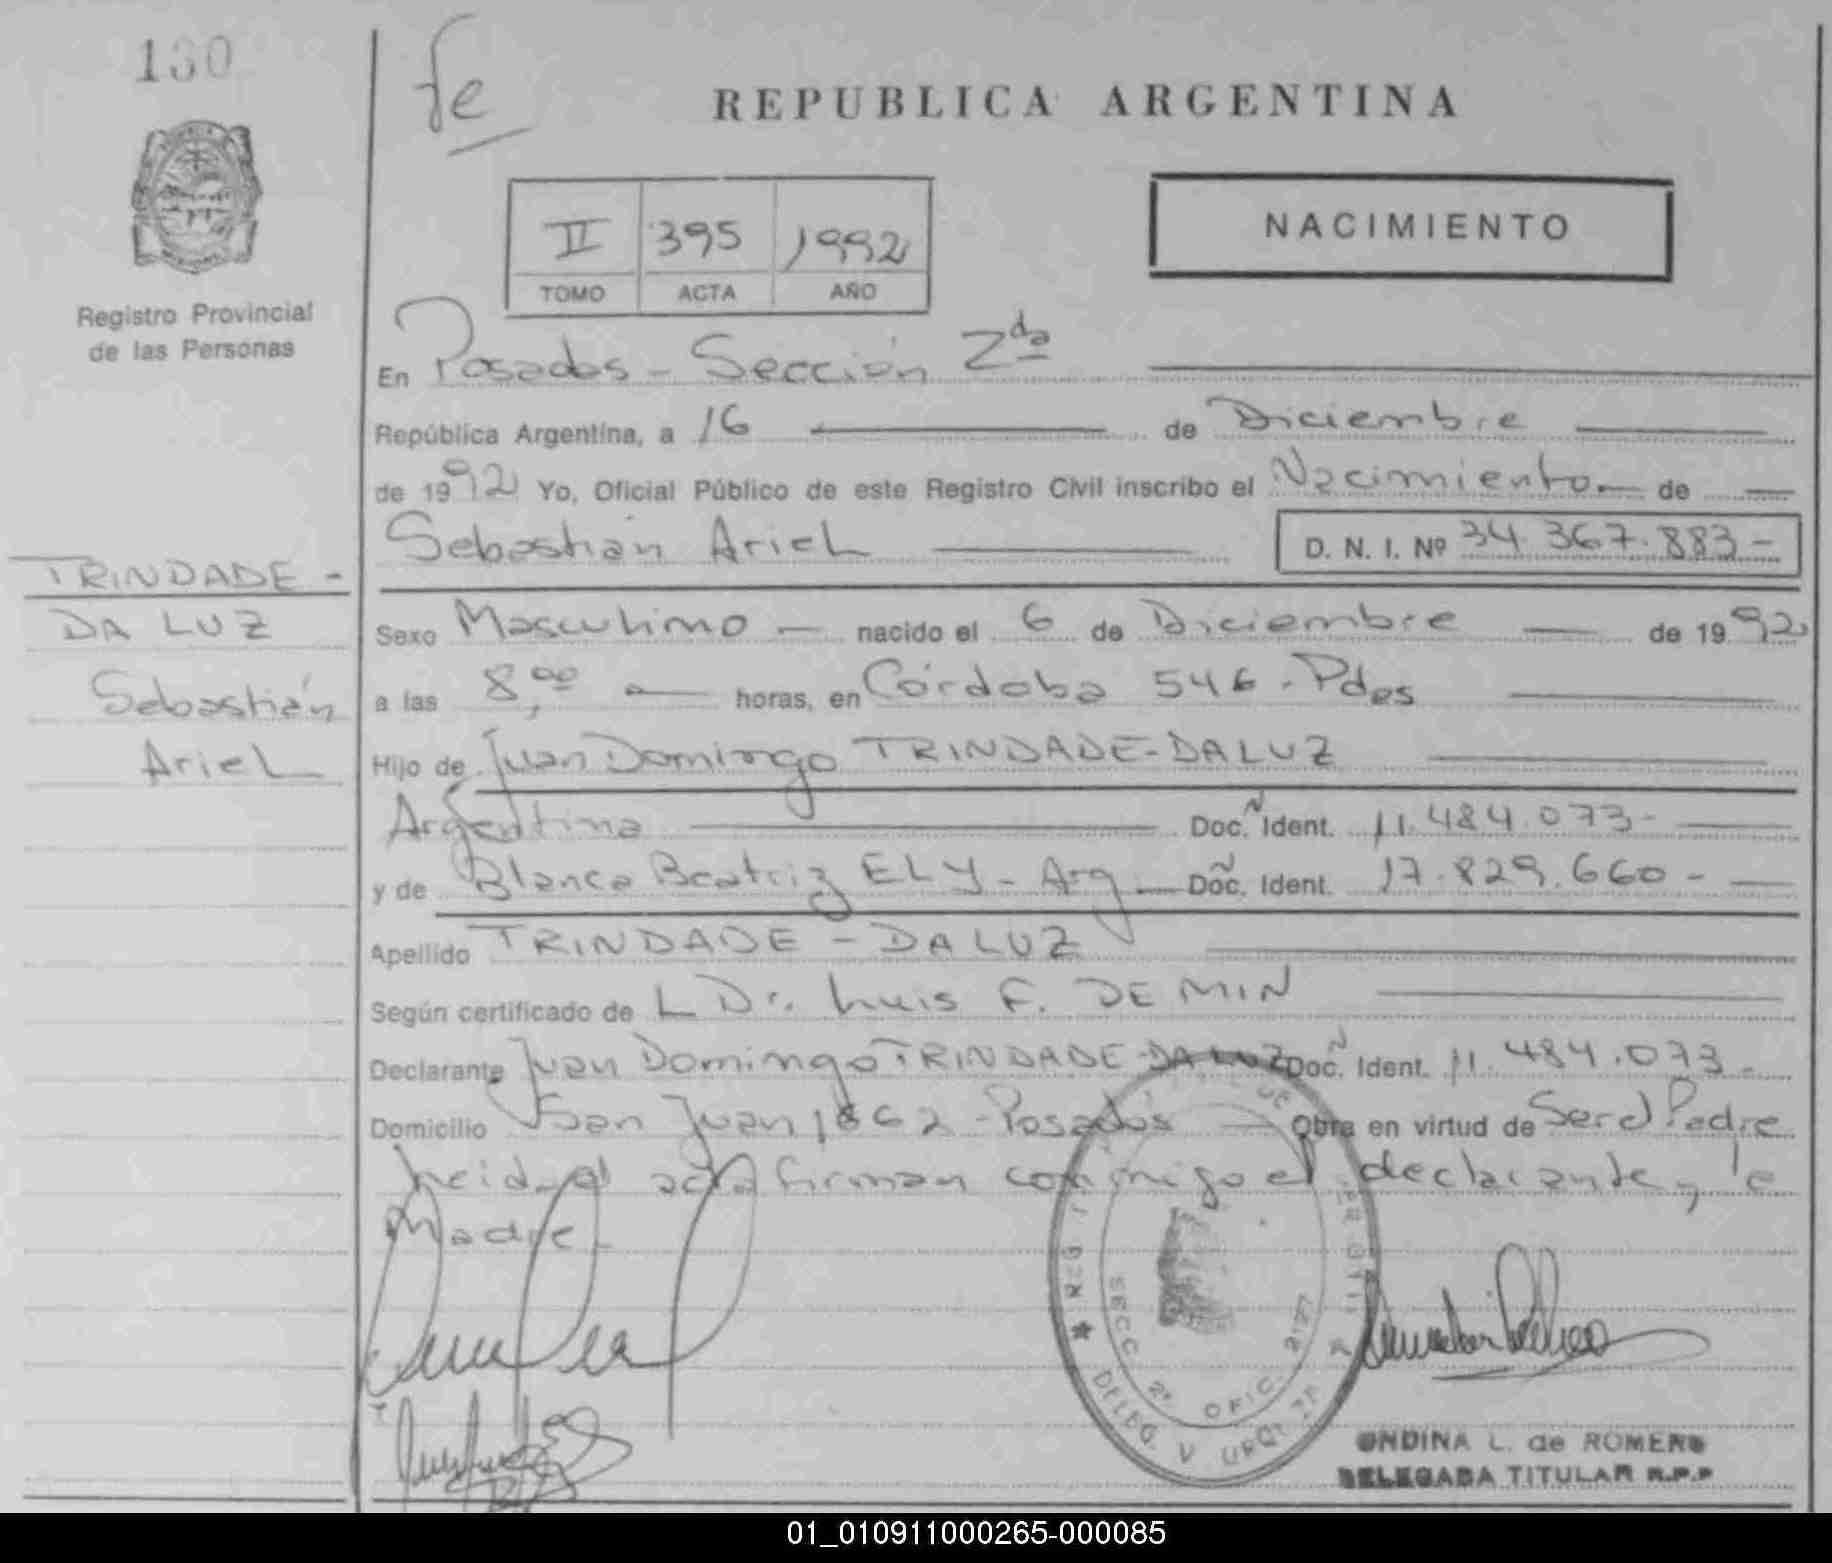 130
fe
REPUBLICA ARGENTINA
II 395 1992
TOMO ACTA AÑO
NACIMIENTO
Registro Provincial
de las Personas
En Posadas - Sección 2da
República Argentina, a 16 de Diciembre
de 1992 Yo, Oficial Público de este Registro Civil inscribo el Nacimiento de
Sebastián Ariel D. N. I. Nº 34.367.883-
TRINDADE -
DA LUZ
Sebastián
Ariel
Sexo Masculino - nacido el 6 de Diciembre de 1992
a las 8,00 horas, en Córdoba 546 - Pdas
Hijo de Juan Domingo TRINDADE-DA LUZ
Argentina Doc. Ident. 11.484.073-
y de Blanca Beatriz ELY - Arg Doc. Ident. 17.829.660-
Apellido TRINDADE - DA LUZ
Según certificado de L Dr. Luis F. DEMIN
Declarante Juan Domingo TRINDADE-DA LUZ Doc. Ident. 11.484.073-
Domicilio San Juan 1862 - Posadas Obra en virtud de Ser el Padre
Leida el acta firman conmigo el declarante y la
Madre-
SECC 2ª OFIC. 2177
DELEG.
ONDINA L. de ROMERO
DELEGADA TITULAR R.P.P
01_010911000265-000085